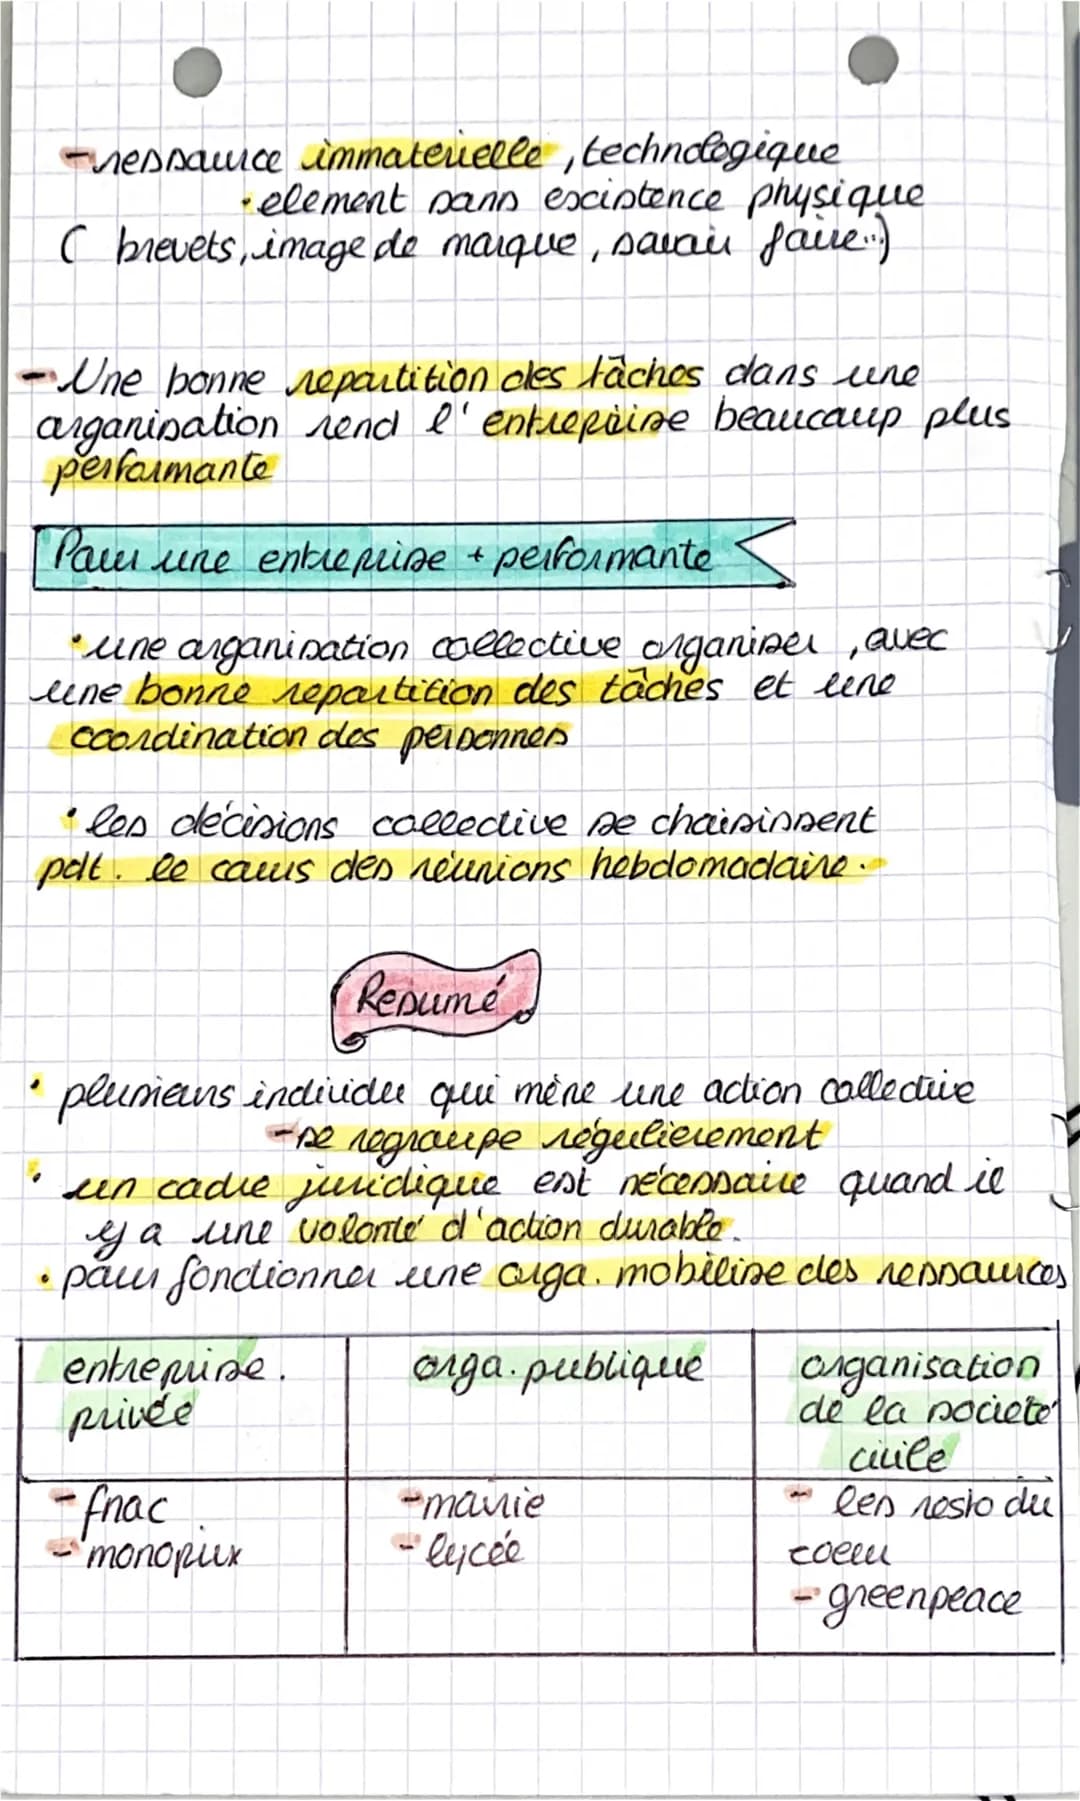 - ressource immaterielle, technologique
• element sans escistence physique
( brevets, image de marque, savoir faire...)
- Une bonne repartition des tâches dans une
organisation rend l'entreprise beaucoup plus
performante
Pour une entreprise + performante
• une organisation collective organiser, avec
une bonne repartition des tâches et une
coordination des personnes
• les décisions collective se choisissent
pdt. le cours des réunions hebdomadaire.
Resumé
• plusieurs individu qui mène une action collective
- se regroupe régulierement
• un cadre juridique est nécessaire quand il
y a une volonté d'action durable.
• pour fonctionner une orga. mobilise des ressources
entreprise. orga. publique organisation
privée de la societé
civile
- fnac - mairie - les resto du
- monoprix - lycée coeur
- greenpeace